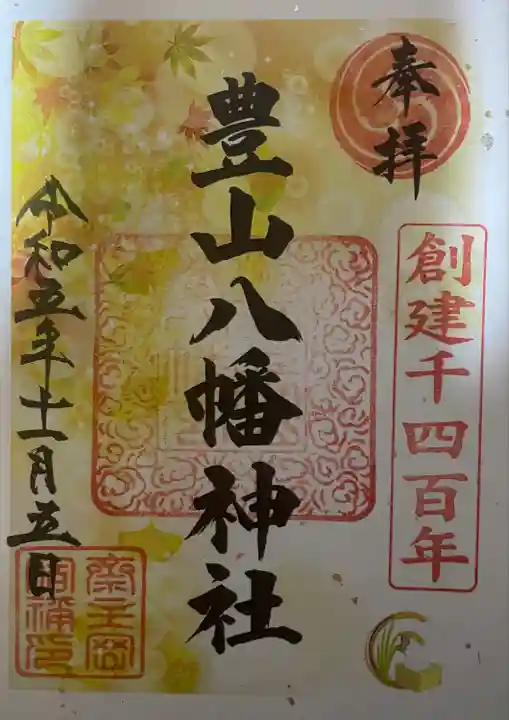 奉拝
創建千四百年
豊山八幡神社
令和五年十一月五日